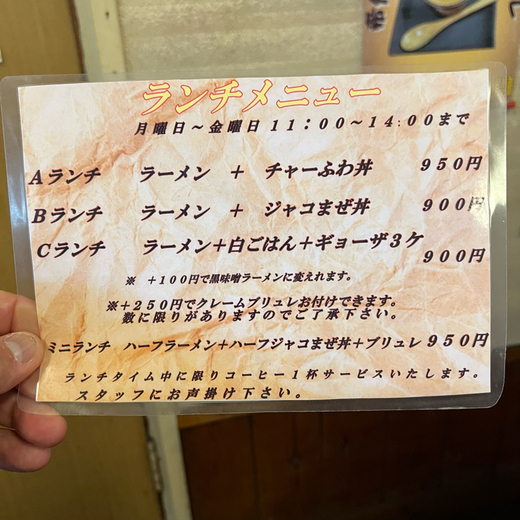 ランチメニュー
月曜日～金曜日 11：00～14:00まで
Aランチ ラーメン ＋ チャーふわ丼 950円
Bランチ ラーメン ＋ ジャコまぜ丼 900円
Cランチ ラーメン＋白ごはん＋ギョーザ3ケ 900円
※ ＋100円で黒味噌ラーメンに変えれます。
※＋250円でクレームブリュレお付けできます。
数に限りがありますのでご了承下さい。
ミニランチ ハーフラーメン＋ハーフジャコまぜ丼＋ブリュレ 950円
ランチタイム中に限りコーヒー1杯サービスいたします。
スタッフにお声掛け下さい。